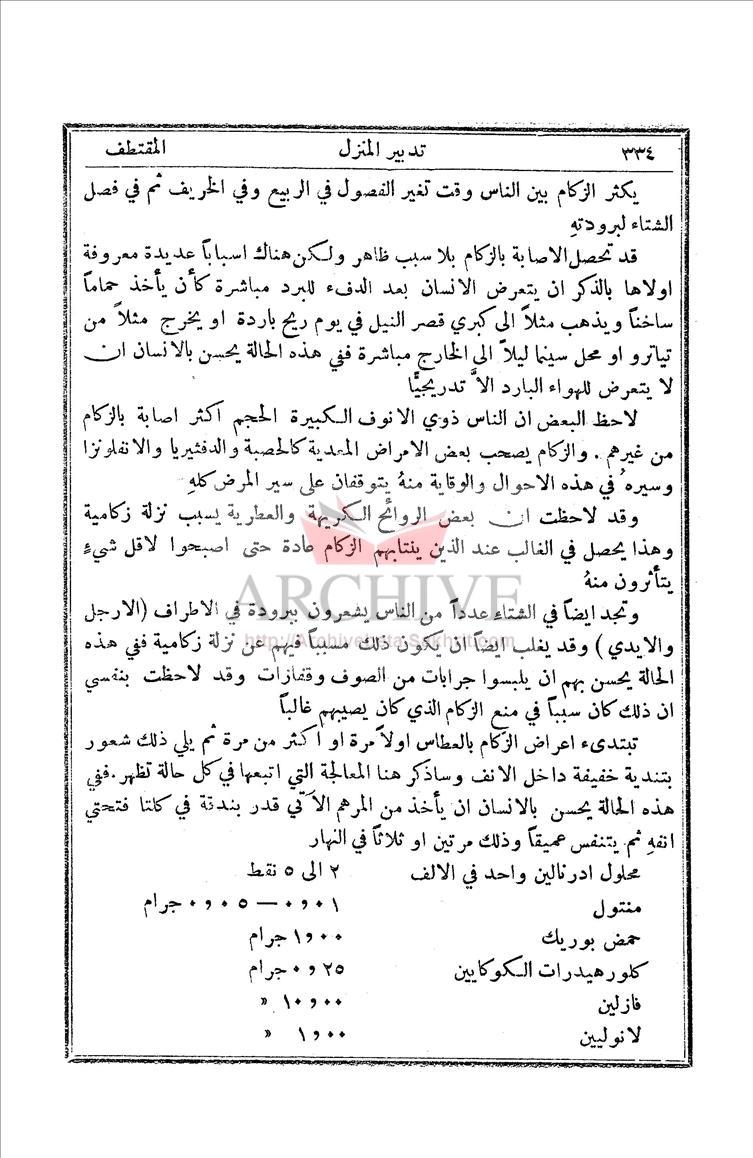 ٣٣٤ تدبير المنزل المقتطف
يكثر الزكام بين الناس وقت تغير الفصول في الربيع وفي الخريف ثم في فصل
الشتاء لبرودتهِ
قد تحصل الاصابة بالزكام بلا سبب ظاهر ولكن هناك اسباباً عديدة معروفة
اولاها بالذكر ان يتعرض الانسان بعد الدفء للبرد مباشرة كأن يأخذ حماماً
ساخناً ويذهب مثلاً الى كبري قصر النيل في يوم ريح باردة او يخرج مثلاً من
تياترو او محل سينما ليلاً الى الخارج مباشرة ففي هذه الحالة يحسن بالانسان ان
لا يتعرض للهواء البارد الاَّ تدريجيًّا
لاحظ البعض ان الناس ذوي الانوف الكبيرة الحجم اكثر اصابة بالزكام
من غيرهم . والزكام يصحب بعض الامراض المعدية كالحصبة والدفثيريا والانفلونزا
وسيرهُ في هذه الاحوال والوقاية منهُ يتوقفان على سير المرض كلهِ
وقد لاحظت ان بعض الروائح الكريهة والعطرية يسبب نزلة زكامية
وهذا يحصل في الغالب عند الذين ينتابهم الزكام عادة حتى اصبحوا لاقل شيءٍ
يتأثرون منهُ
ARCHIVE
وتجد ايضاً في الشتاء عدداً من الناس يشعرون ببرودة في الاطراف (الارجل
والايدي) وقد يغلب ايضاً ان يكون ذلك مسبباً فيهم عن نزلة زكامية ففي هذه
http://Archivebeta.Sakhrit.com
الحالة يحسن بهم ان يلبسوا جرابات من الصوف وقفازات وقد لاحظت بنفسي
ان ذلك كان سبباً في منع الزكام الذي كان يصيبهم غالباً
تبتدىء اعراض الزكام بالعطاس اولاً مرة او اكثر من مرة ثم يلي ذلك شعور
بتندية خفيفة داخل الانف وساذكر هنا المعالجة التي اتبعها في كل حالة تظهر . ففي
هذه الحالة يحسن بالانسان ان يأخذ من المرهم الآتي قدر بندقة في كلتا فتحتي
انفهِ ثم يتنفس عميقاً وذلك مرتين او ثلاثاً في النهار
محلول ادرنالين واحد في الالف ٢ الى ٥ نقط
منتول ٠٫٠١ — ٠٫٠٥ جرام
حمض بوريك ١٫٠٠ جرام
كلورهيدرات الكوكايين ٠٫٢٥ جرام
فازلين ١٠٫٠٠ »
لانوليين ١٫٠٠ »